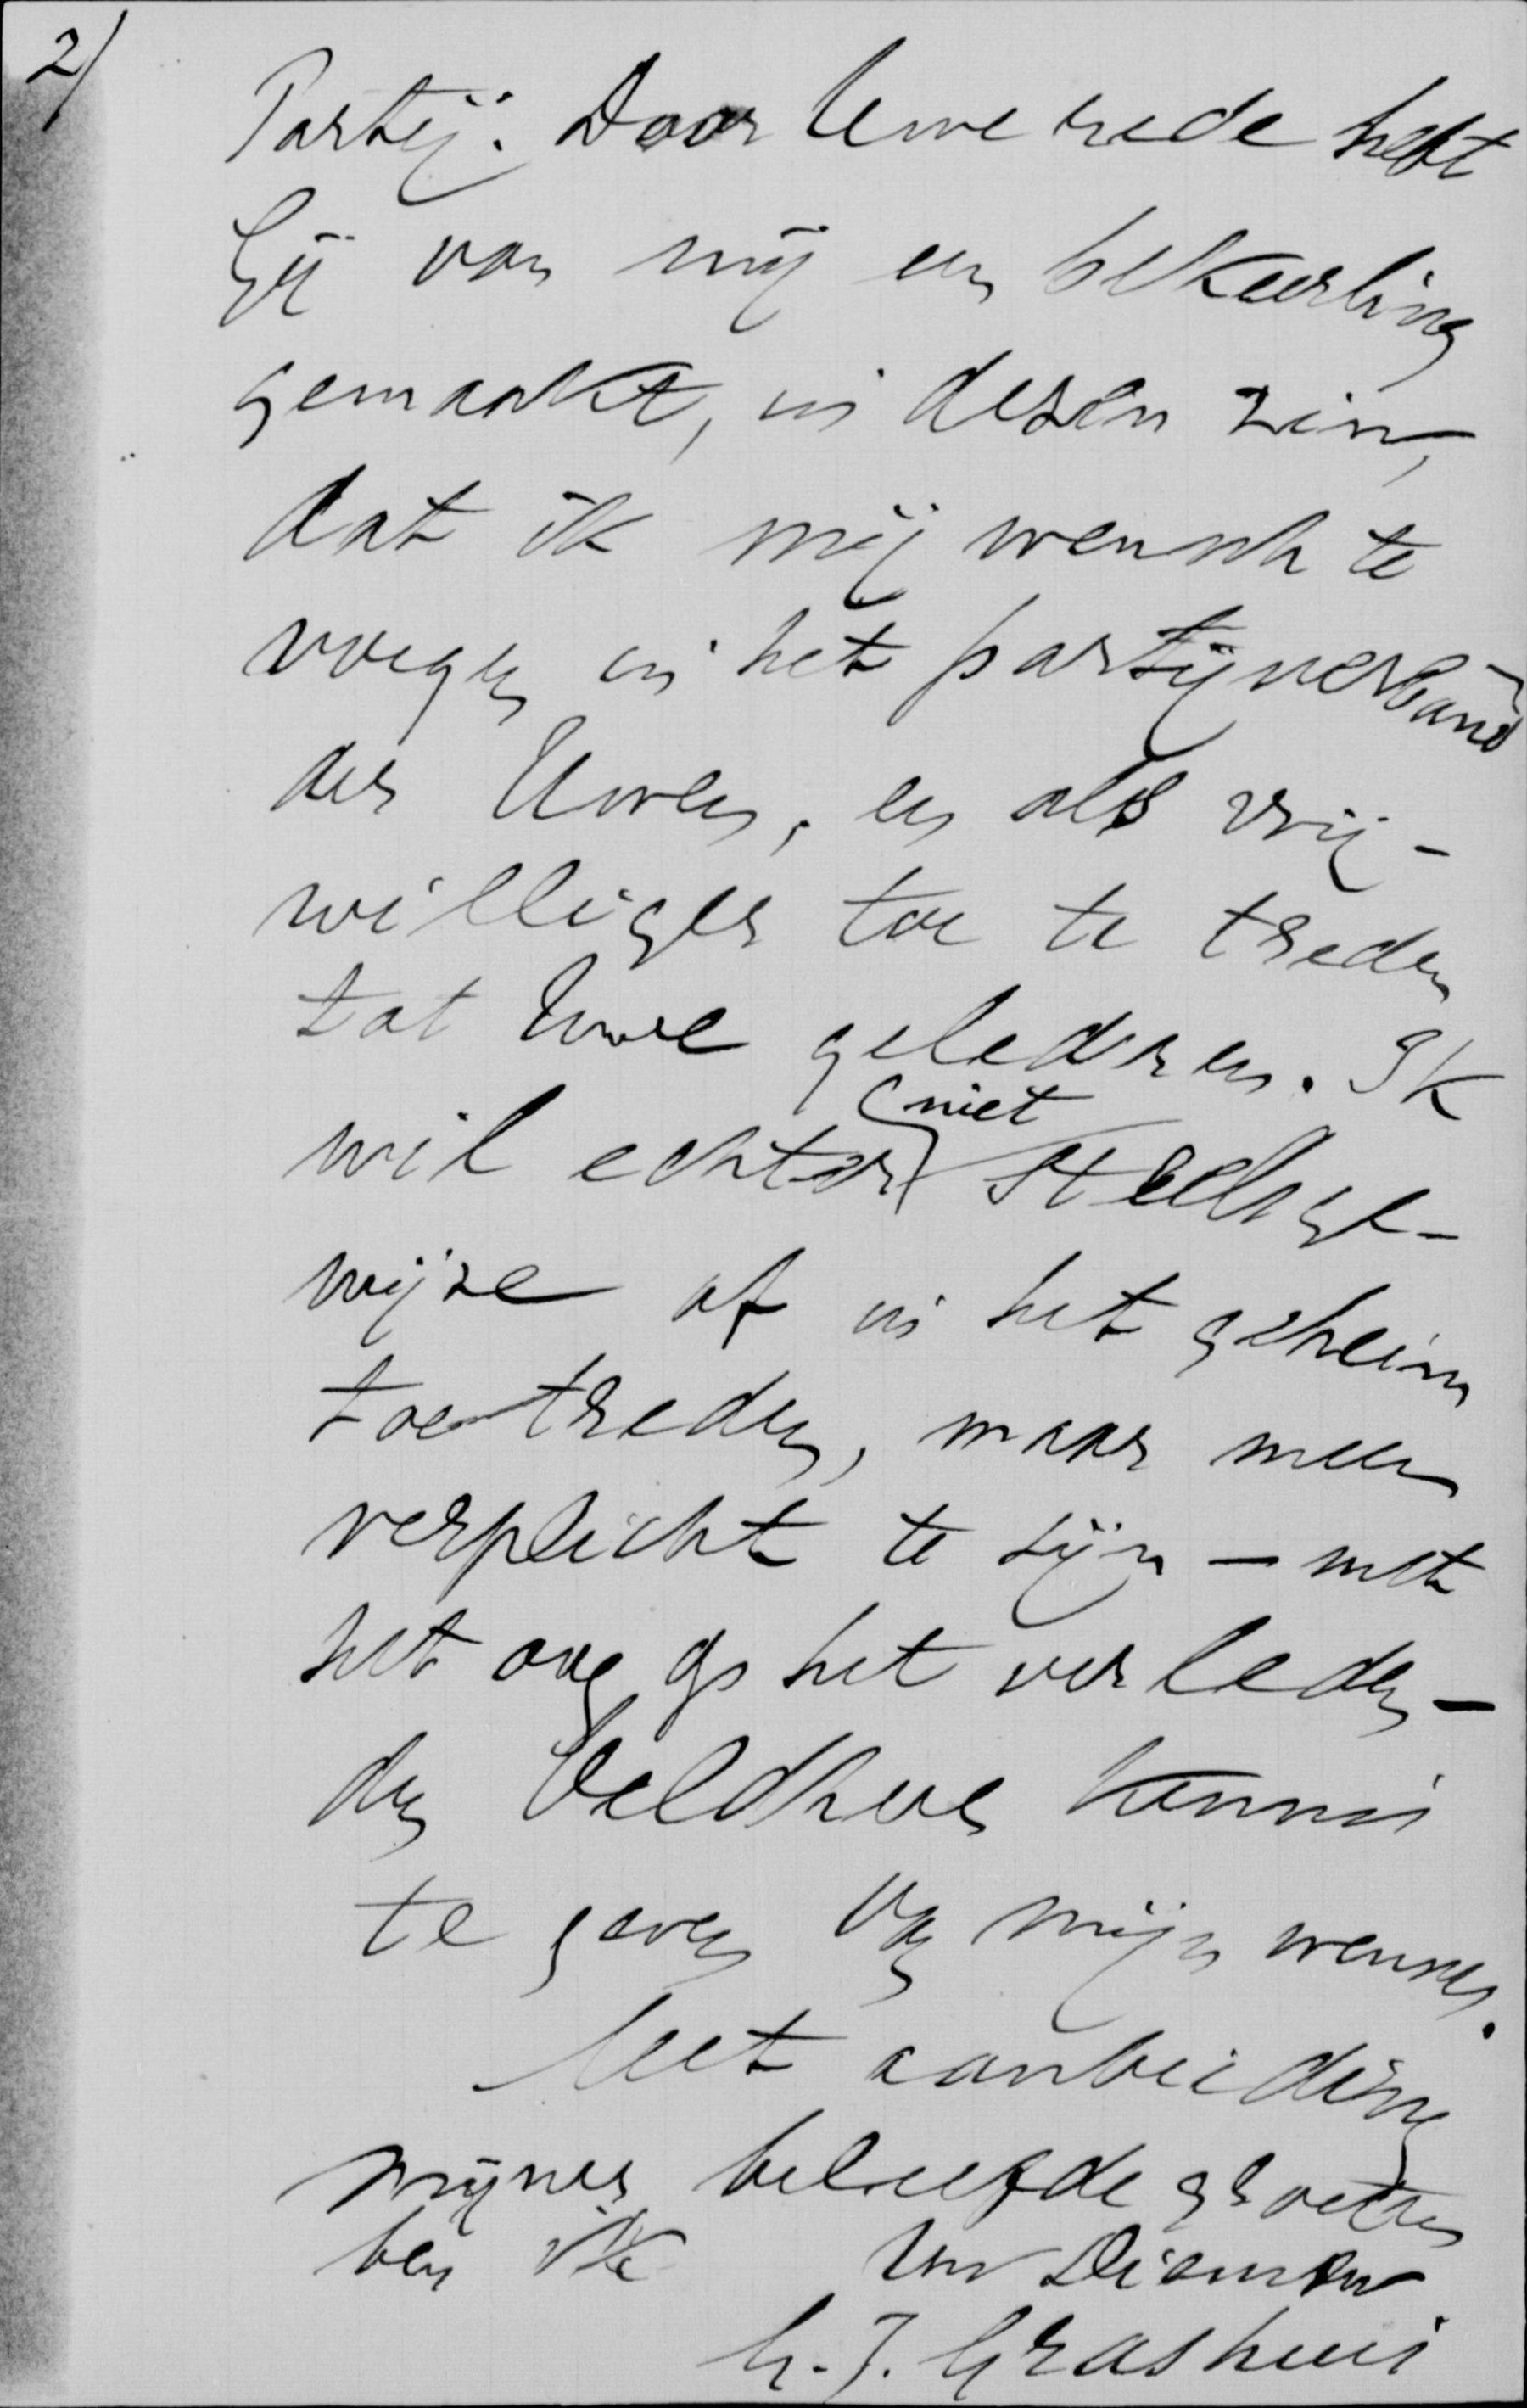 2/
Partij. Door Uwe rede hebt
Gij van mij een bekeerling
gemaakt, in dezen zin,
dat ik mij wensch te
voegen in het partijverband
der Uwen, en als vrij-
williger toe te treden
tot Uwe gelederen. Ik
wil echter niet steelsge-
wijze of in het geheim
toetreden, maar meen
verplicht te zijn - met
het oog op het verleden -
den Veldheer kennis
te geven van mijn wensch.
Met aanbieding
mijner beleefde groeten
ben ik Uw Dienaar
G. J. Grashuis